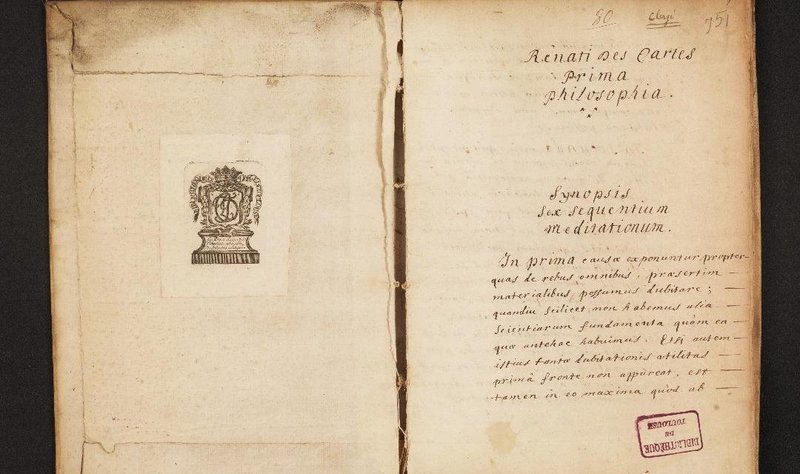 80
751
Renati Des Cartes
Prima
philosophia.
Synopsis
sex sequentium
meditationum.
In prima causæ exponuntur propter-
quas de rebus omnibus, præsertim
materialibus, possumus dubitare;
quandiu scilicet non habemus alia
scientiarum fundamenta quàm ea
quæ antehac habuimus. Etsi autem
istius tantæ dubitationis utilitas
primâ fronte non appareat, est
tamen in eo maxima quòd ab
BIBLIOTHÈQUE
DE
TOULOUSE